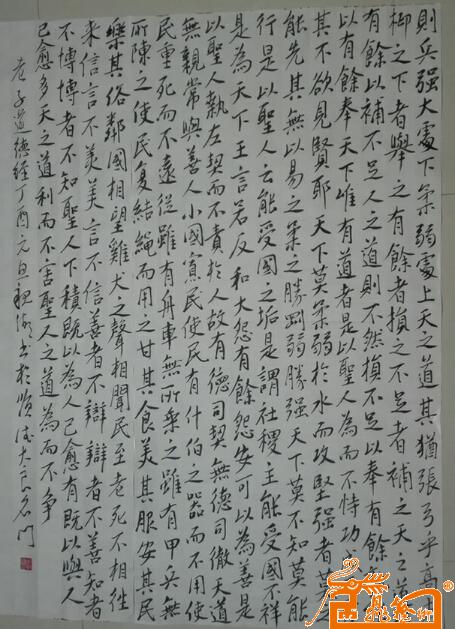 則兵强大處下柔弱處上天之道其猶張弓乎高
抑之下者舉之有餘者損之不足者補之天之道
有餘以補不足人之道則不然損不足以奉有餘
以有餘奉天下唯有道者是以聖人為而不恃功
其不欲見賢耶天下莫柔弱於水而攻堅强者莫
能先其無以易之柔之勝剛弱勝强天下莫不知莫能
行是以聖人云能受國之垢是謂社稷主能受國不祥
是為天下王言若反和大怨有餘怨安可以為善是
以聖人執左契而不責於人故有德司契無德司徹天道
無親常與善人小國寡民使民有什伯之器而不用使
民重死而不遠徙雖有舟車無所乘之雖有甲兵無
所陳之使民复結繩而用之甘其食美其服安其民
樂其俗鄰國相望雞犬之聲相聞民至老死不相往
来信言不美美言不信善者不辯辯者不善知者
不博博者不知聖人不積既以為人己愈有既以與人
己愈多天之道利而不害聖人之道為而不争
老子道德經丁酉元旦書於順德大良名門